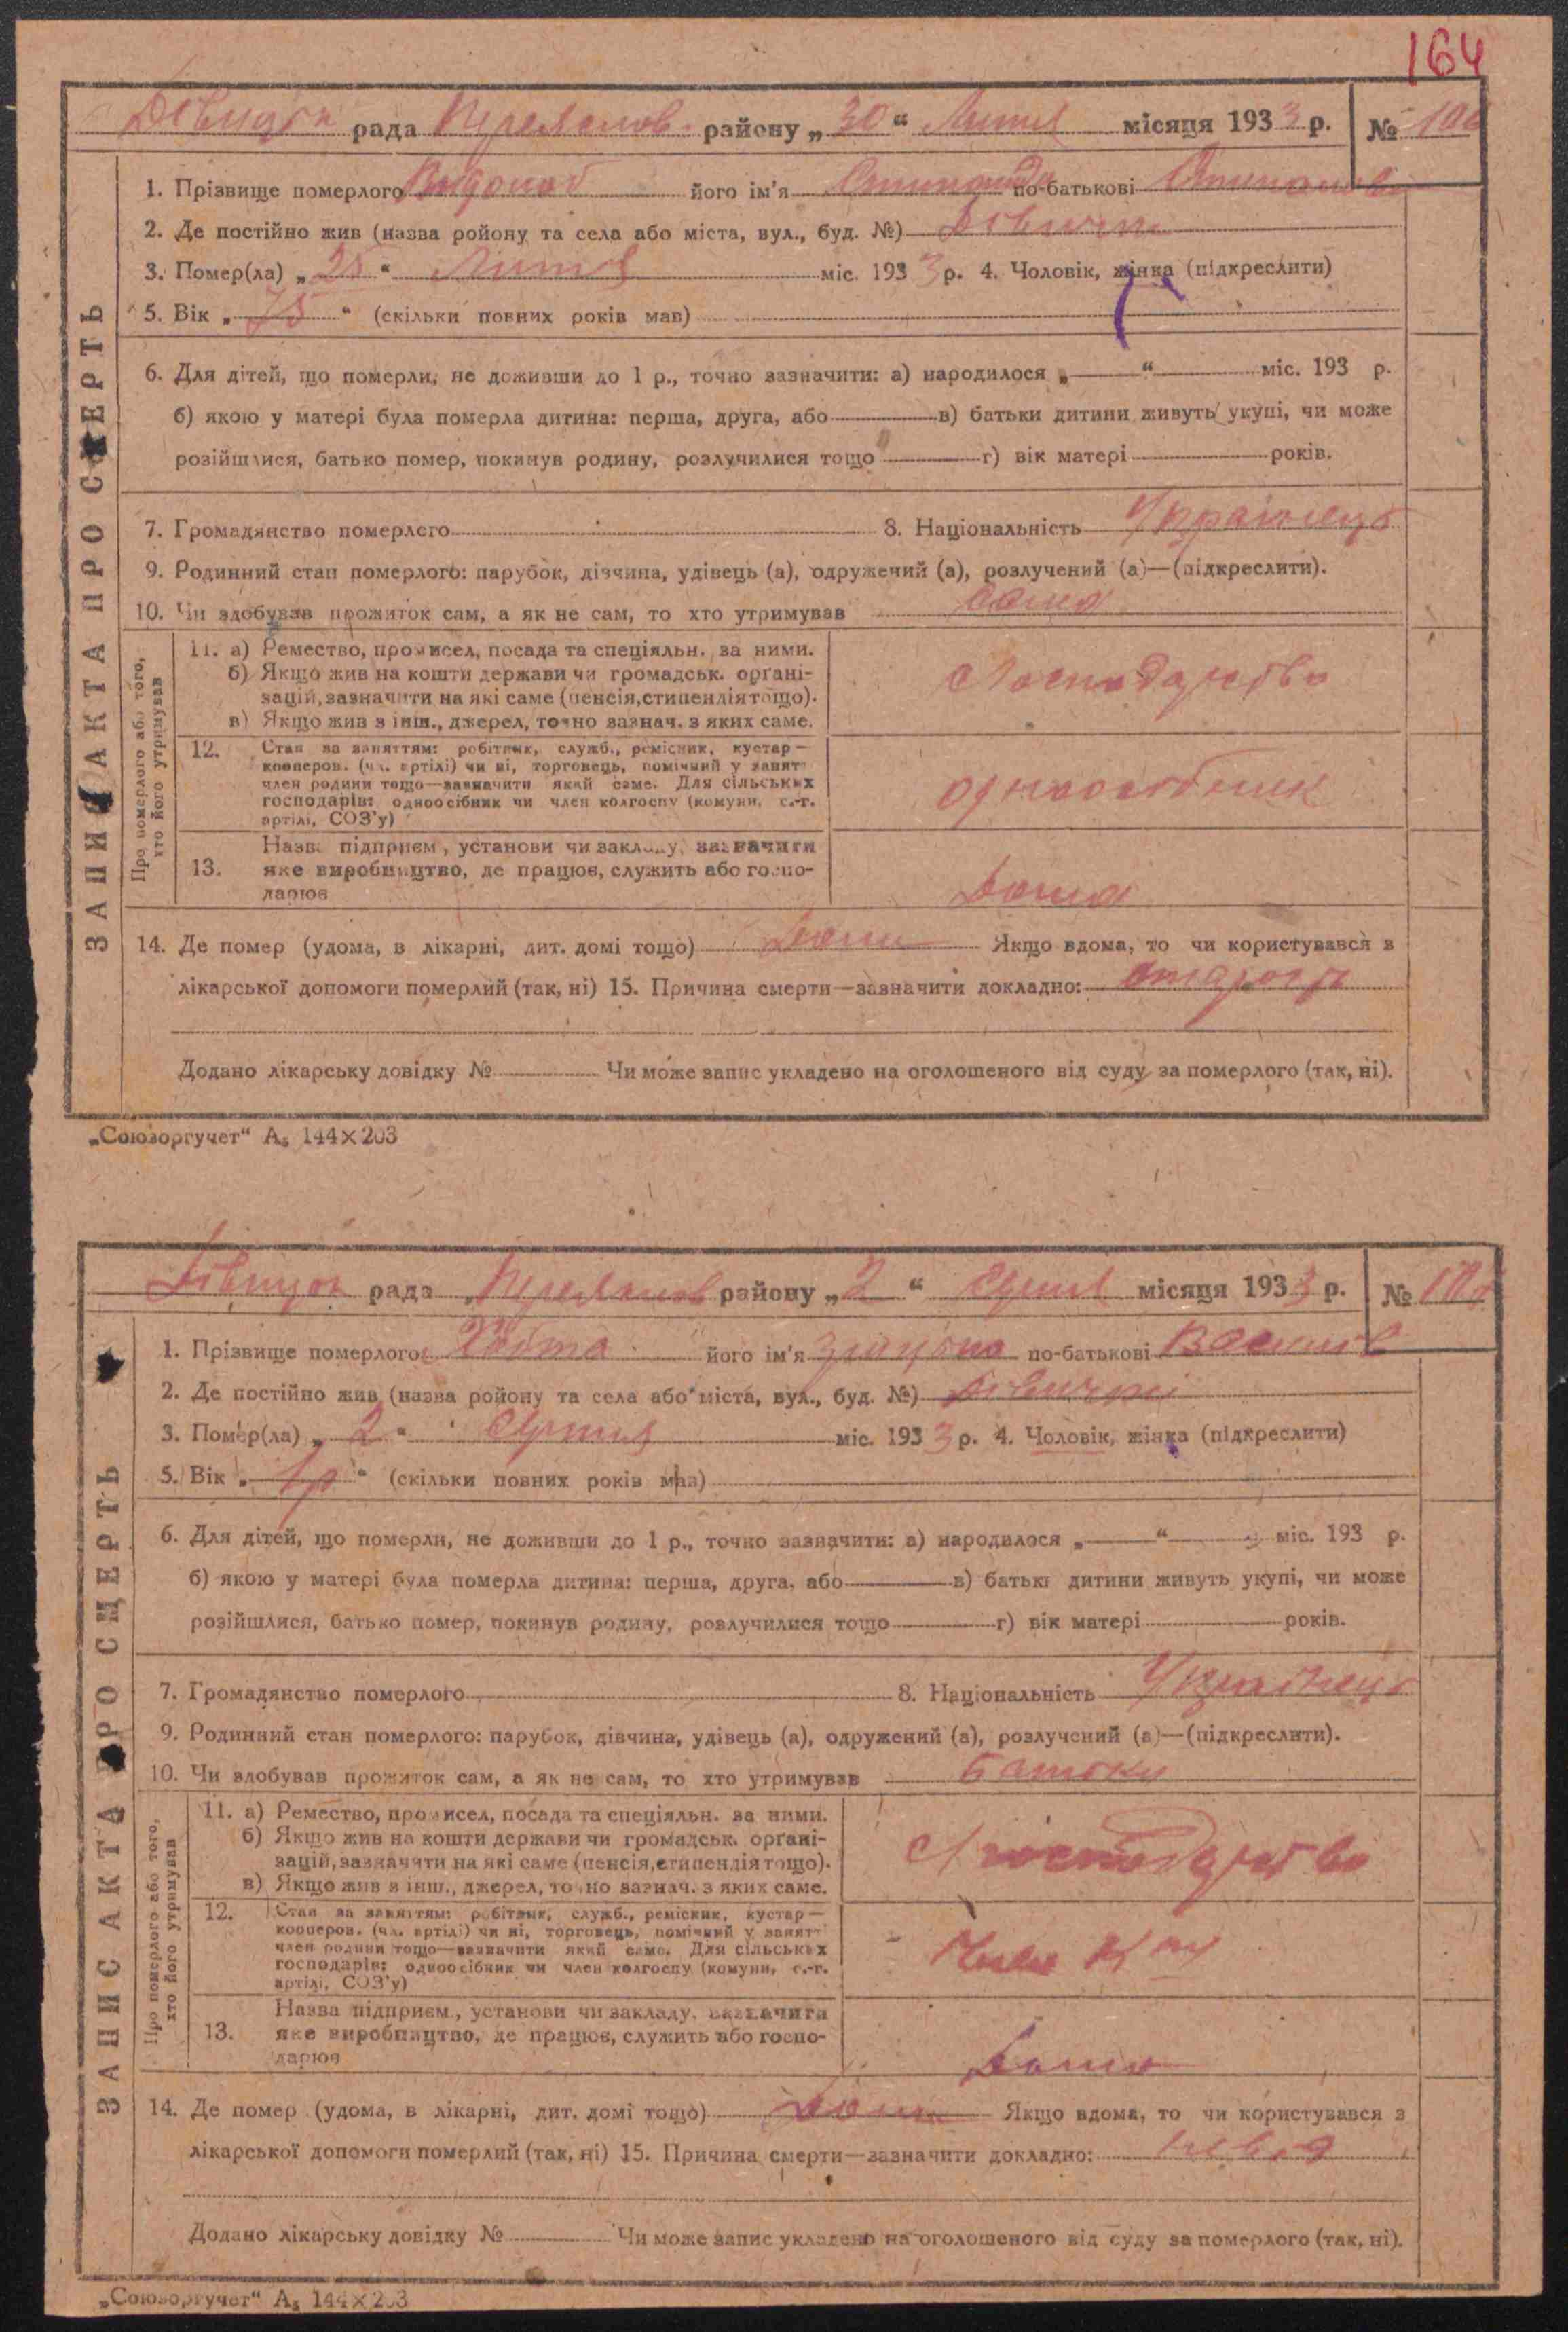 164
рада району „30“ Липня місяця 1933 р. №
1. Прізвище померлого його ім'я по-батькові
2. Де постійно жив (назва ройону та села або міста, вул., буд. №) Дівички
3. Помер(ла) „25“ Липня міс. 1933 р. 4. Чоловік, жінка (підкреслити)
5. Вік „75“ (скільки повних років мав)
6. Для дітей, що померли, не доживши до 1 р., точно зазначити: а) народилося „ “ міс. 193 р.
б) якою у матері була померла дитина: перша, друга, або в) батьки дитини живуть укупі, чи може
розійшлися, батько помер, покинув родину, розлучилися тощо г) вік матері років.
7. Громадянство померлого 8. Національність Українець
9. Родинний стан померлого: парубок, дівчина, удівець (а), одружений (а), розлучений (а)—(підкреслити).
10. Чи здобував прожиток сам, а як не сам, то хто утримував сама
ЗАПИС АКТА ПРО СМЕРТЬ
Про померлого або того,
хто його утримував
11. а) Ремество, промисел, посада та спеціяльн. за ними.
б) Якщо жив на кошти держави чи громадськ. орґані-
зацій, зазначити на які саме (пенсія, стипендія тощо).
в) Якщо жив з інш., джерел, точно зазнач. з яких саме.
Господарство
12. Стан за заняттям: робітник, служб., ремісник, кустар—
кооперов. (чл. артілі) чи ні, торговець, помічний у занятт
член родини тощо—зазначити який саме. Для сільських
господарів: одноосібник чи член колгоспу (комуни, с.-г.
артілі, СОЗ'у)
одноосібник
13. Назва підприєм., установи чи закладу, зазначити
яке виробництво, де працює, служить або госпо-
дарює
Дома
14. Де помер (удома, в лікарні, дит. домі тощо) Дома Якщо вдома, то чи користувався з
лікарської допомоги померлий (так, ні) 15. Причина смерти—зазначити докладно: старость
Додано лікарську довідку № Чи може запис укладено на оголошеного від суду за померлого (так, ні).
„Союзоргучет“ А₅ 144×203
рада району „2“ Серпня місяця 1933 р. №
1. Прізвище померлого його ім'я по-батькові Василів
2. Де постійно жив (назва ройону та села або міста, вул., буд. №) Дівички
3. Помер(ла) „2“ Серпня міс. 1933 р. 4. Чоловік, жінка (підкреслити)
5. Вік „1р“ (скільки повних років мав)
6. Для дітей, що померли, не доживши до 1 р., точно зазначити: а) народилося „ “ міс. 193 р.
б) якою у матері була померла дитина: перша, друга, або в) батьки дитини живуть укупі, чи може
розійшлися, батько помер, покинув родину, розлучилися тощо г) вік матері років.
7. Громадянство померлого 8. Національність Українець
9. Родинний стан померлого: парубок, дівчина, удівець (а), одружений (а), розлучений (а)—(підкреслити).
10. Чи здобував прожиток сам, а як не сам, то хто утримував Батьки
ЗАПИС АКТА ПРО СМЕРТЬ
Про померлого або того,
хто його утримував
11. а) Ремество, промисел, посада та спеціяльн. за ними.
б) Якщо жив на кошти держави чи громадськ. орґані-
зацій, зазначити на які саме (пенсія, стипендія тощо).
в) Якщо жив з інш., джерел, точно зазнач. з яких саме.
Господарство
12. Стан за заняттям: робітник, служб., ремісник, кустар—
кооперов. (чл. артілі) чи ні, торговець, помічний у занятт
член родини тощо—зазначити який саме. Для сільських
господарів: одноосібник чи член колгоспу (комуни, с.-г.
артілі, СОЗ'у)
Член
13. Назва підприєм., установи чи закладу, зазначити
яке виробництво, де працює, служить або госпо-
дарює
Дома
14. Де помер (удома, в лікарні, дит. домі тощо) Дома Якщо вдома, то чи користувався з
лікарської допомоги померлий (так, ні) 15. Причина смерти—зазначити докладно:
Додано лікарську довідку № Чи може запис укладено на оголошеного від суду за померлого (так, ні).
„Союзоргучет“ А₅ 144×203